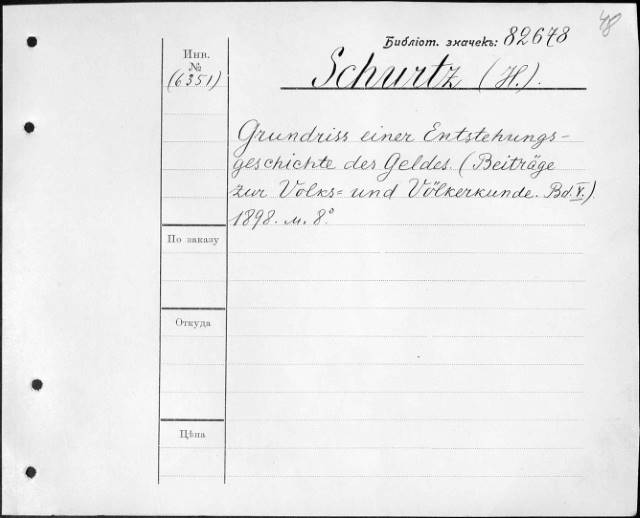 48
Библіот. значекъ: 82678
Инв.
№
(6351)
Schurtz (H.).
Grundriss einer Entstehungs-
geschichte des Geldes. (Beiträge
zur Volks= und Völkerkunde. Bd. V.)
1898. м. 8°
По заказу
Откуда
Цѣна